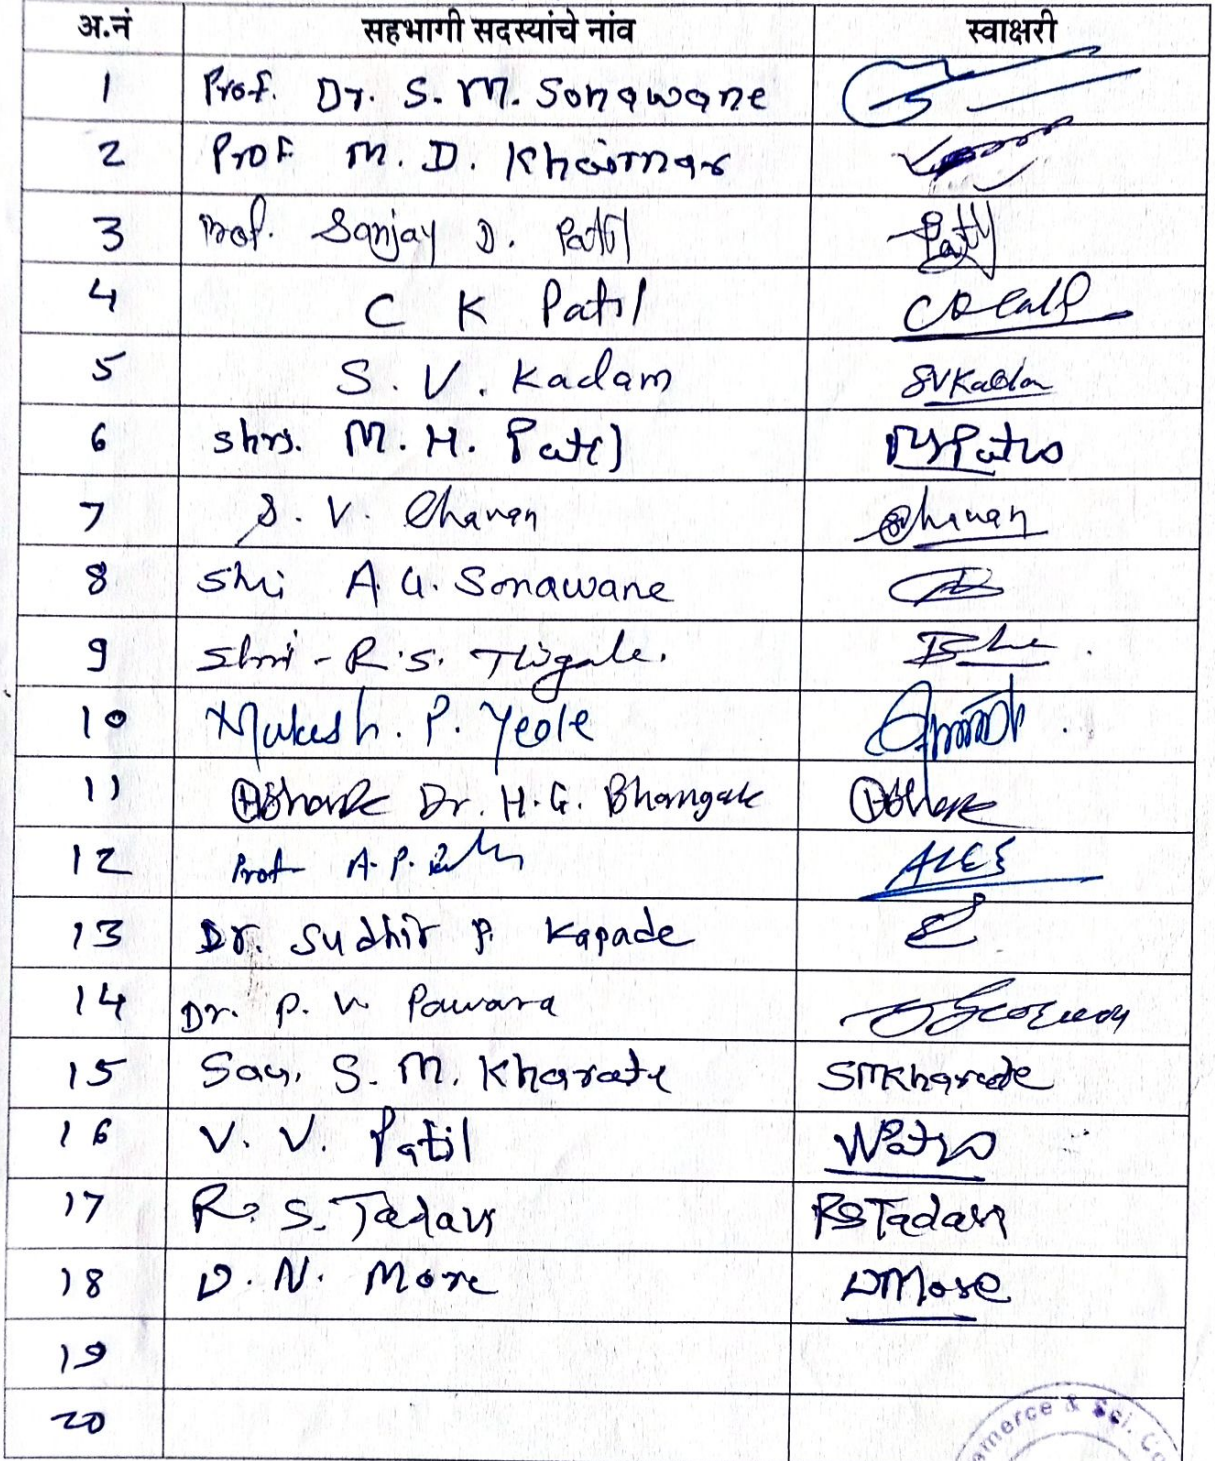 अ.नं सहभागी सदस्यांचे नांव स्वाक्षरी
1 Prof. Dr. S. M. Sonawane
2 Prof M. D. Khairnar
3 Prof. Sanjay D. Patil Patil
4 C K Patil
5 S. V. Kadam SVKadam
6 Shri. M. H. Patil
7 S. V. Chavan Chavan
8 Shri A. G. Sonawane
9 Shri - R. S. Thigale.
10 Mukesh. P. Yeole
11 Dr. H. G. Bhangale
12 Prof A. P.
13 Dr. Sudhir P. Kapade
14 Dr. P. V. Pawara
15 Sau. S. M. Kharate SMKharate
16 V. V. Patil
17 R. S. Tadavi RSTadavi
18 D. N. More DMore
19
20
mmerce & Sci. Co